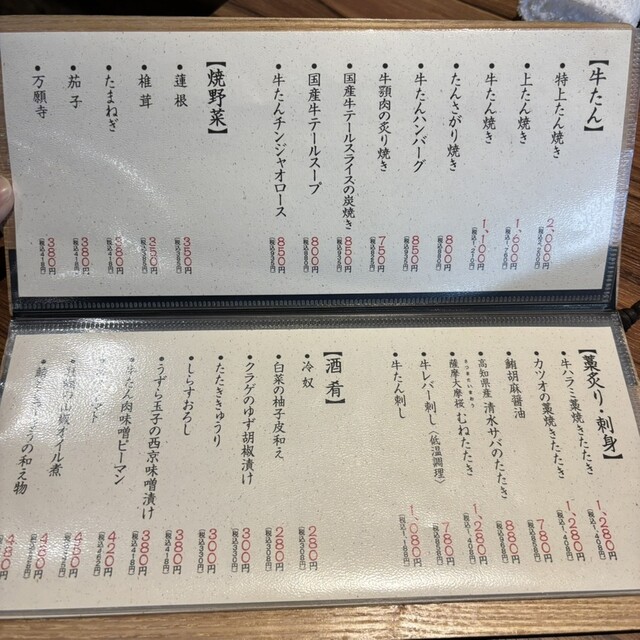 【牛たん】
・特上たん焼き 2,000円 (税込2,200円)
・上たん焼き 1,600円 (税込1,760円)
・牛たん焼き 1,100円 (税込1,210円)
・たんさがり焼き 800円
・牛たんハンバーグ 850円
・牛顎肉の炙り焼き 750円
・国産牛テールスライスの炭焼き 850円
・国産牛テールスープ 800円
・牛たんチンジャオロース 850円
【焼野菜】
・蓮根 350円
・椎茸 350円
・たまねぎ 380円 (税込418円)
・茄子 380円 (税込418円)
・万願寺 380円 (税込418円)
【藁炙り・刺身】
・牛ハラミ藁焼きたたき 1,280円 (税込1,408円)
・カツオの藁焼きたたき 1,280円 (税込1,408円)
・鮪胡麻醤油 780円
・高知県産 清水サバのたたき 880円
・薩摩大摩桜 むねたたき 1,280円 (税込1,408円)
・牛レバー刺し(低温調理) 780円
・牛たん刺し 1,080円
【酒肴】
・冷奴 280円 (税込308円)
・白菜の柚子皮和え 280円 (税込308円)
・クラゲのゆず胡椒漬け 300円 (税込330円)
・たたききゅうり 300円 (税込330円)
・しらすおろし 380円 (税込418円)
・うずら玉子の西京味噌漬け 380円 (税込418円)
・牛たん肉味噌ピーマン 420円 (税込462円)
マト 450円
オイル煮 480円
の和え物 480円